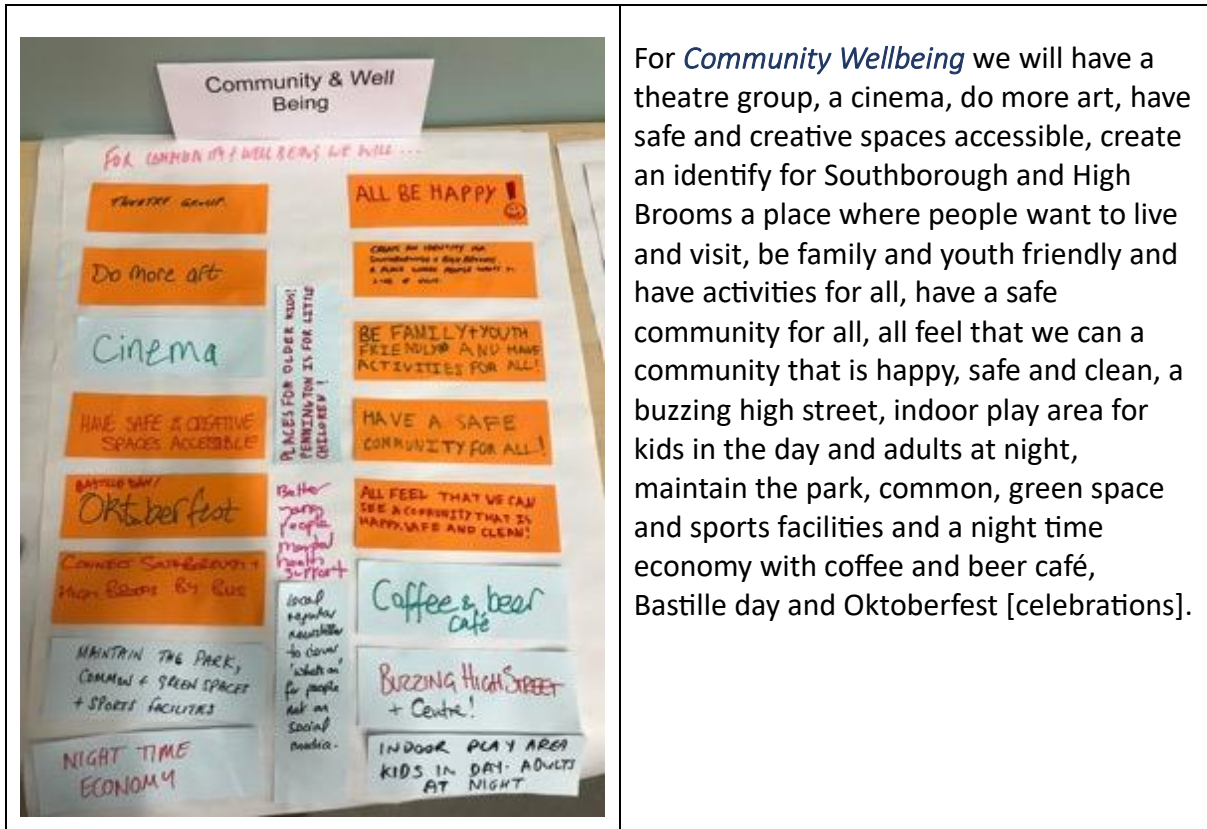 Community & Well
Being
FOR COMMUNITY & WELL BEING WE WILL ...
THEATRE GROUP.
Do more art
Cinema
HAVE SAFE & CREATIVE
SPACES ACCESSIBLE
BASTILLE DAY/
Oktoberfest
CONNECT SOUTHBOROUGH +
HIGH BROOMS BY BUS
MAINTAIN THE PARK,
COMMON + GREEN SPACES
+ SPORTS FACILITIES
NIGHT TIME
ECONOMY
PLACES FOR OLDER KIDS!
PENNINGTON IS FOR LITTLE
CHILDREN!
Better
young
people
mental
health
support
Local
regular
newsletter
to cover
'whats on'
for people
not on
social
media.
ALL BE HAPPY!
CREATE AN IDENTITY FOR
SOUTHBOROUGH + HIGH BROOMS
A PLACE WHERE PEOPLE WANT TO
LIVE & VISIT
BE FAMILY+YOUTH
FRIENDLY AND HAVE
ACTIVITIES FOR ALL!
HAVE A SAFE
COMMUNITY FOR ALL!
ALL FEEL THAT WE CAN
SEE A COMMUNITY THAT IS
HAPPY, SAFE AND CLEAN!
Coffee & beer
café
BUZZING HIGH STREET
+ Centre!
INDOOR PLAY AREA
KIDS IN DAY- ADULTS
AT NIGHT
For Community Wellbeing we will have a
theatre group, a cinema, do more art, have
safe and creative spaces accessible, create
an identify for Southborough and High
Brooms a place where people want to live
and visit, be family and youth friendly and
have activities for all, have a safe
community for all, all feel that we can a
community that is happy, safe and clean, a
buzzing high street, indoor play area for
kids in the day and adults at night,
maintain the park, common, green space
and sports facilities and a night time
economy with coffee and beer café,
Bastille day and Oktoberfest [celebrations].